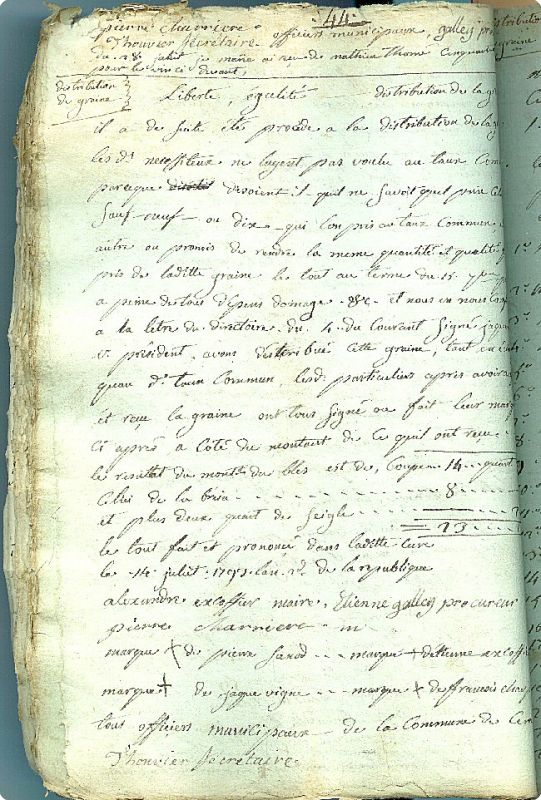 44
pierre charriere officiers municipaux, galley pro
Thouvier Secrétaire
du 28 juliet je marie ai reu de mathieu Thome Cinquante
pour le vinci devant,
distribution de graine
Liberté, egalité distribution de la g
il a de suite été procédé a la distribution de la g
les dt necessiteux ne layent pas voulu au taux Com
parceque disoient il quil ne savoit quel prix
Sauf - neuf - ou dix - qui lon pris au taux Commun
autre ou promis de rendre la meme quantité et qualité
pris de laditte graine le tout au terme du 15
a peine de tous dépens domage &c - et nous en nous
a la letre du directoire du 4 du Courant Signé
v. président, avons distribué Cette graine, tant en
quau dt taux Commun, lesd. particuliers apres avoir
et reçu la graine ont tous signé ou fait leur mar
Ci après a Coté du montant de Ce quil ont reçu
le resultat du montt du bles est de, Coupes 14 quart
Celui de la 8
et plus deux quart de Seigle
23
le tout fait et prononcé dans laditte Cure
le 14 juliet 1793 lan 2d de la republique
alexandre excoffier maire, Etienne galley procureur
pierre charriere m
marque + de pierre - - - marque + detienne excoffi
marque + de jaque vigne - - - marque + de francois
tous officiers municipaux - de la Commune de
Thouvier Secrétaire